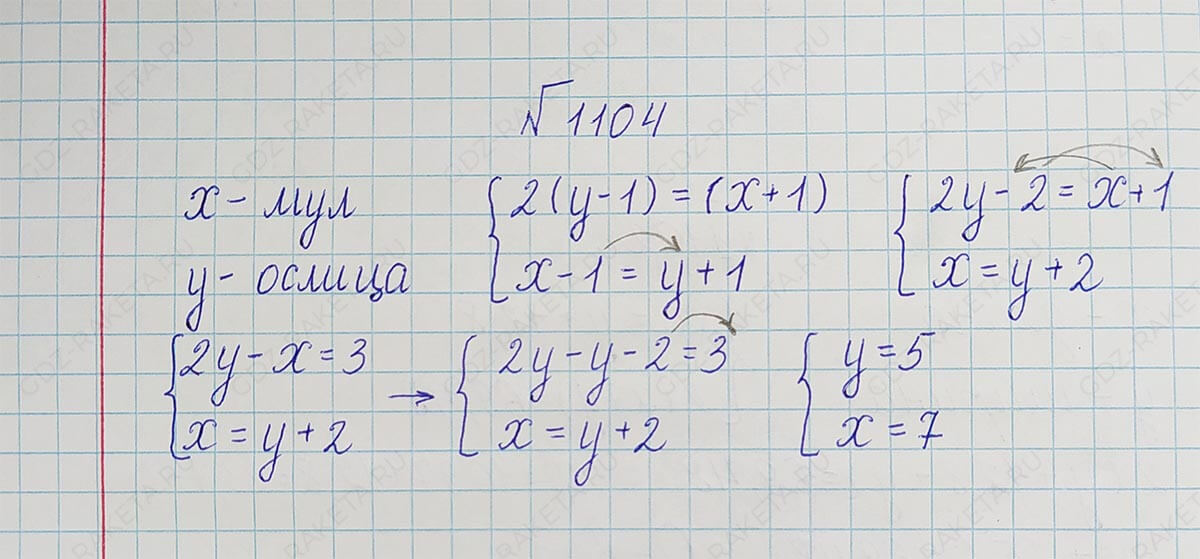 № 1104
x - мул
y - ослица
{ 2(y-1) = (x+1)
x-1 = y+1
{ 2y-2 = x+1
x = y+2
{ 2y-x=3
x = y+2
→
{ 2y-y-2=3
x = y+2
{ y=5
x=7
GDZ-RAKETA.RU